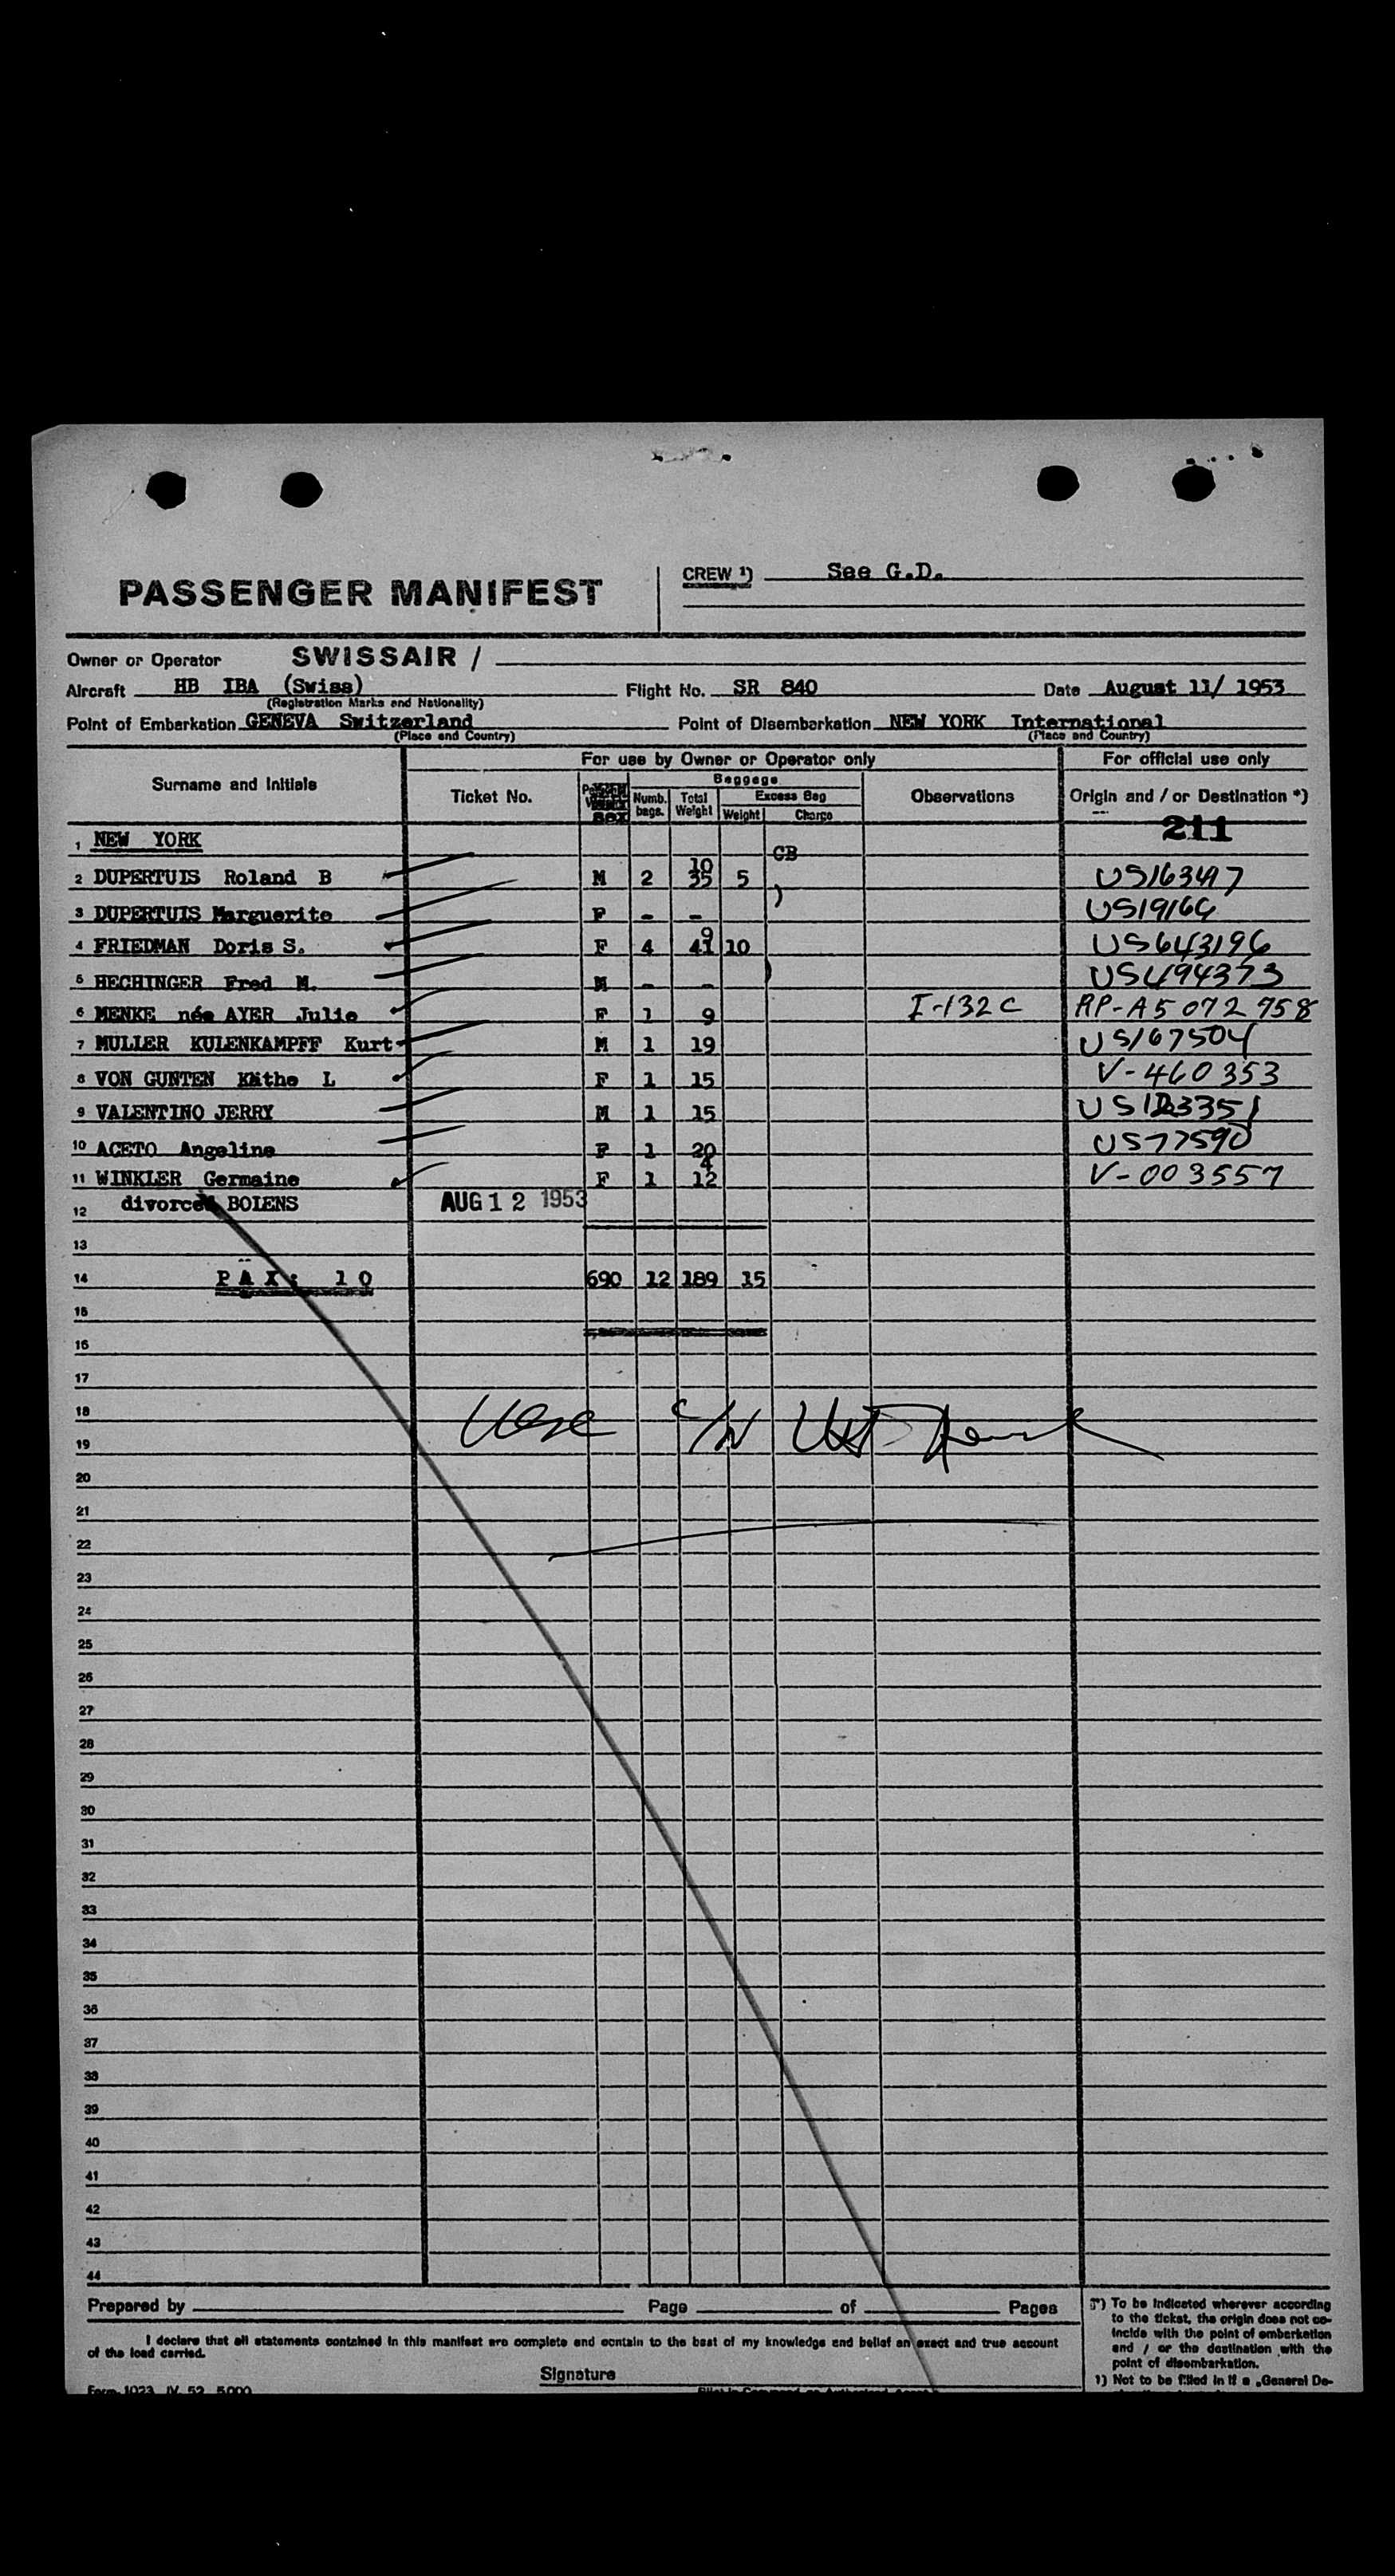 PASSENGER MANIFEST
CREW ¹) See G.D.
Owner or Operator SWISSAIR /
Aircraft HB IBA (Swiss) Flight No. SR 840 Date August 11/ 1953
(Registration Marks and Nationality)
Point of Embarkation GENEVA Switzerland Point of Disembarkation NEW YORK International
(Place and Country) (Place and Country)
For use by Owner or Operator only For official use only
Surname and Initials Ticket No. SEX Numb. bags. Total Weight Baggage Excess Bag Weight Charge Observations Origin and / or Destination *)
211
1 NEW YORK
CB
10
2 DUPERTUIS Roland B M 2 35 5 US163497
3 DUPERTUIS Marguerite F - - US19166
9
4 FRIEDMAN Doris S. F 4 41 10 US643196
5 HECHINGER Fred M. M - - US494373
6 MENKE née AYER Julie F 1 9 I-132C RP-A5 072 758
7 MULLER KULENKAMPFF Kurt M 1 19 US167504
8 VON GUNTEN Käthe L F 1 15 V-460353
9 VALENTINO JERRY M 1 15 US123351
10 ACETO Angeline F 1 20 US77590
4
11 WINKLER Germaine F 1 12 V-003557
12 divorced BOLENS AUG 12 1953
13
14 PAX: 10 690 12 189 15
15
16
17
18
19
20
21
22
23
24
25
26
27
28
29
30
31
32
33
34
35
36
37
38
39
40
41
42
43
44
Prepared by Page of Pages
I declare that all statements contained in this manifest are complete and contain to the best of my knowledge and belief an exact and true account
of the load carried.
Signature
Form 1023 IV. 52 5000
*) To be indicated wherever according
to the ticket, the origin does not co-
incide with the point of embarkation
and / or the destination with the
point of disembarkation.
1) Not to be filled in if a „General De-